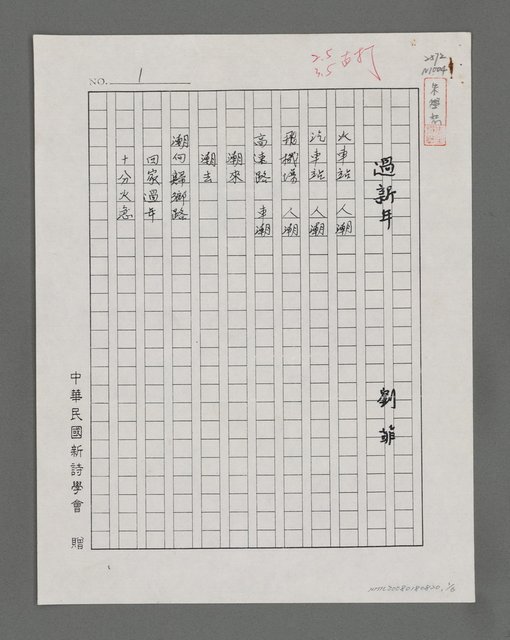 NO. 1
2.5
3.5 古打
過新年
劉菲
火車站 人潮
汽車站 人潮
飛機場 人潮
高速路 車潮
潮來
潮去
潮向歸鄉路
回家過年
十分火急
中華民國新詩學會 贈
NMTL20080180820, 1/6